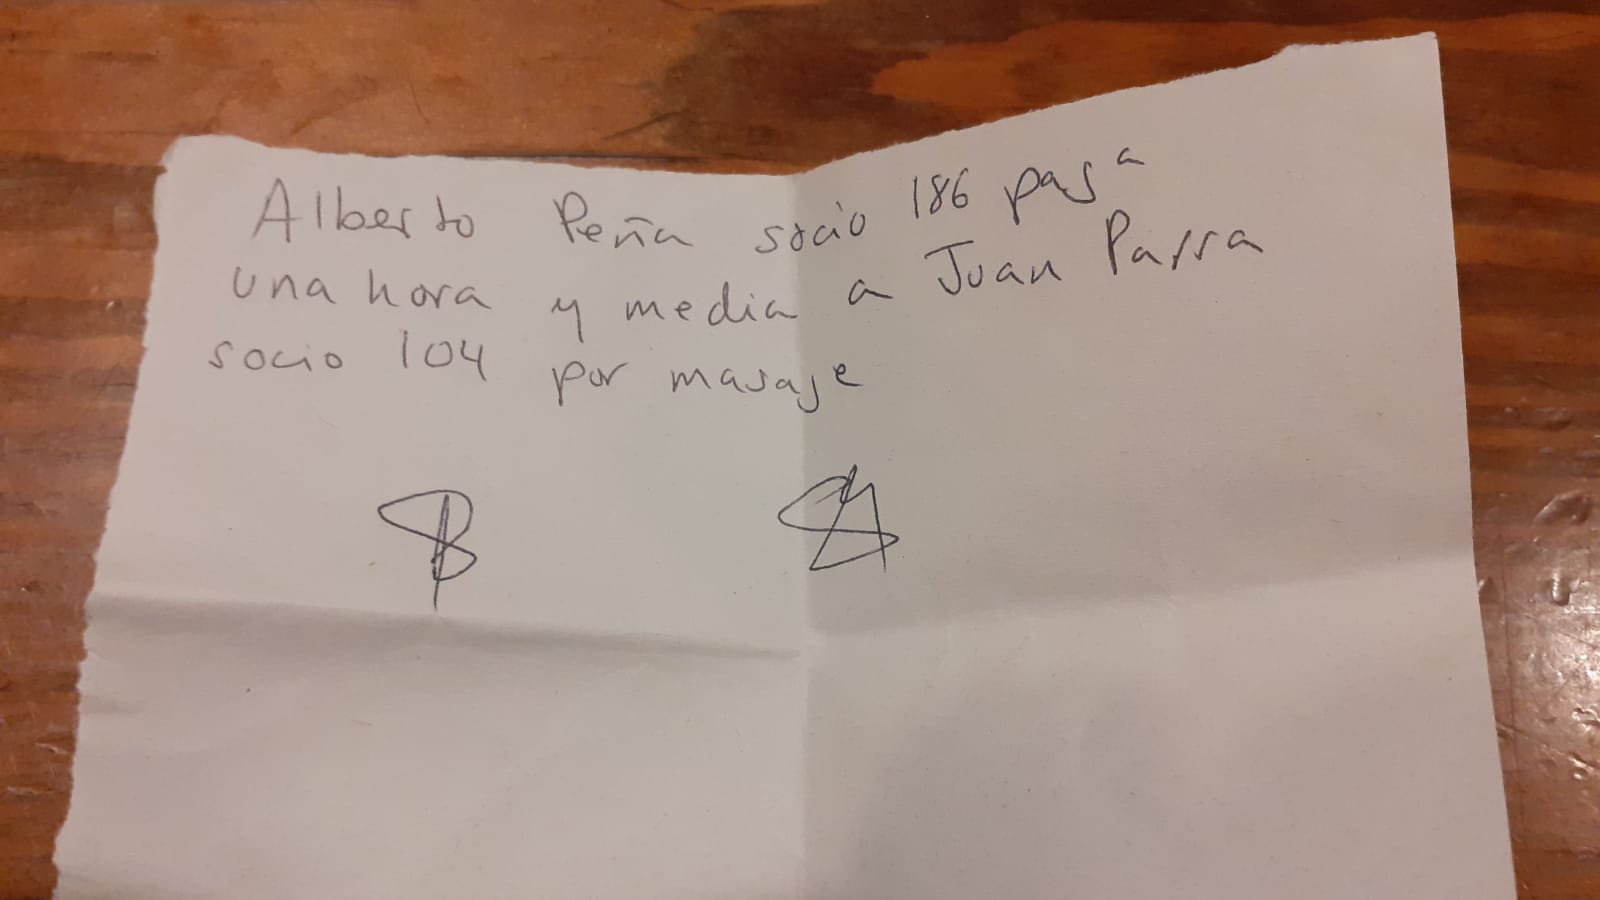 Alberto Peña socio 186 paga
una hora y media a Juan Parra
socio 104 por masaje